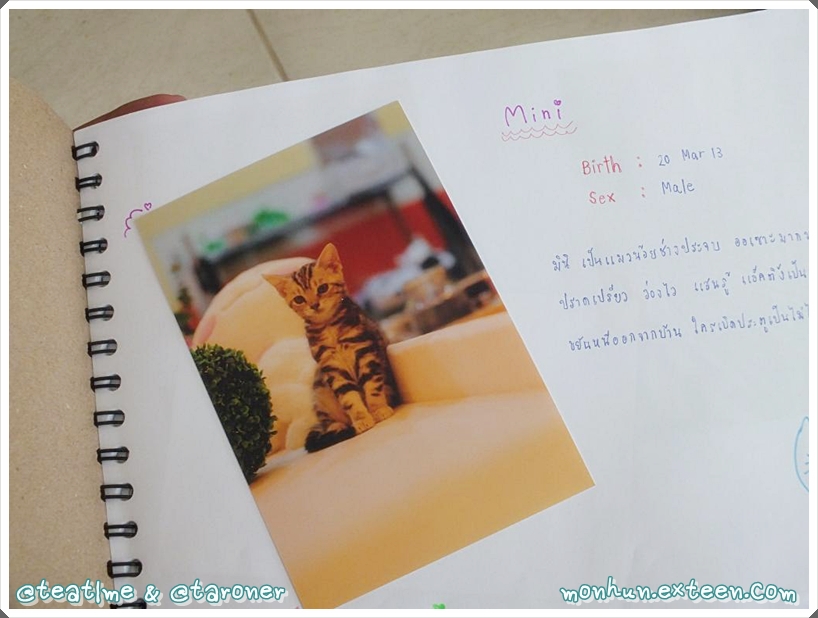 Mini
Birth : 20 Mar 13
Sex : Male
มินิ เป็นแมวน้อยช่างประจบ ออเซาะมาก
ปราดเปรียว ว่องไว แสนรู้
ขยันหนีออกจากบ้าน ใครเปิดประตูเป็นไม่ได้
@teatime & @taroner
monhun.exteen.com